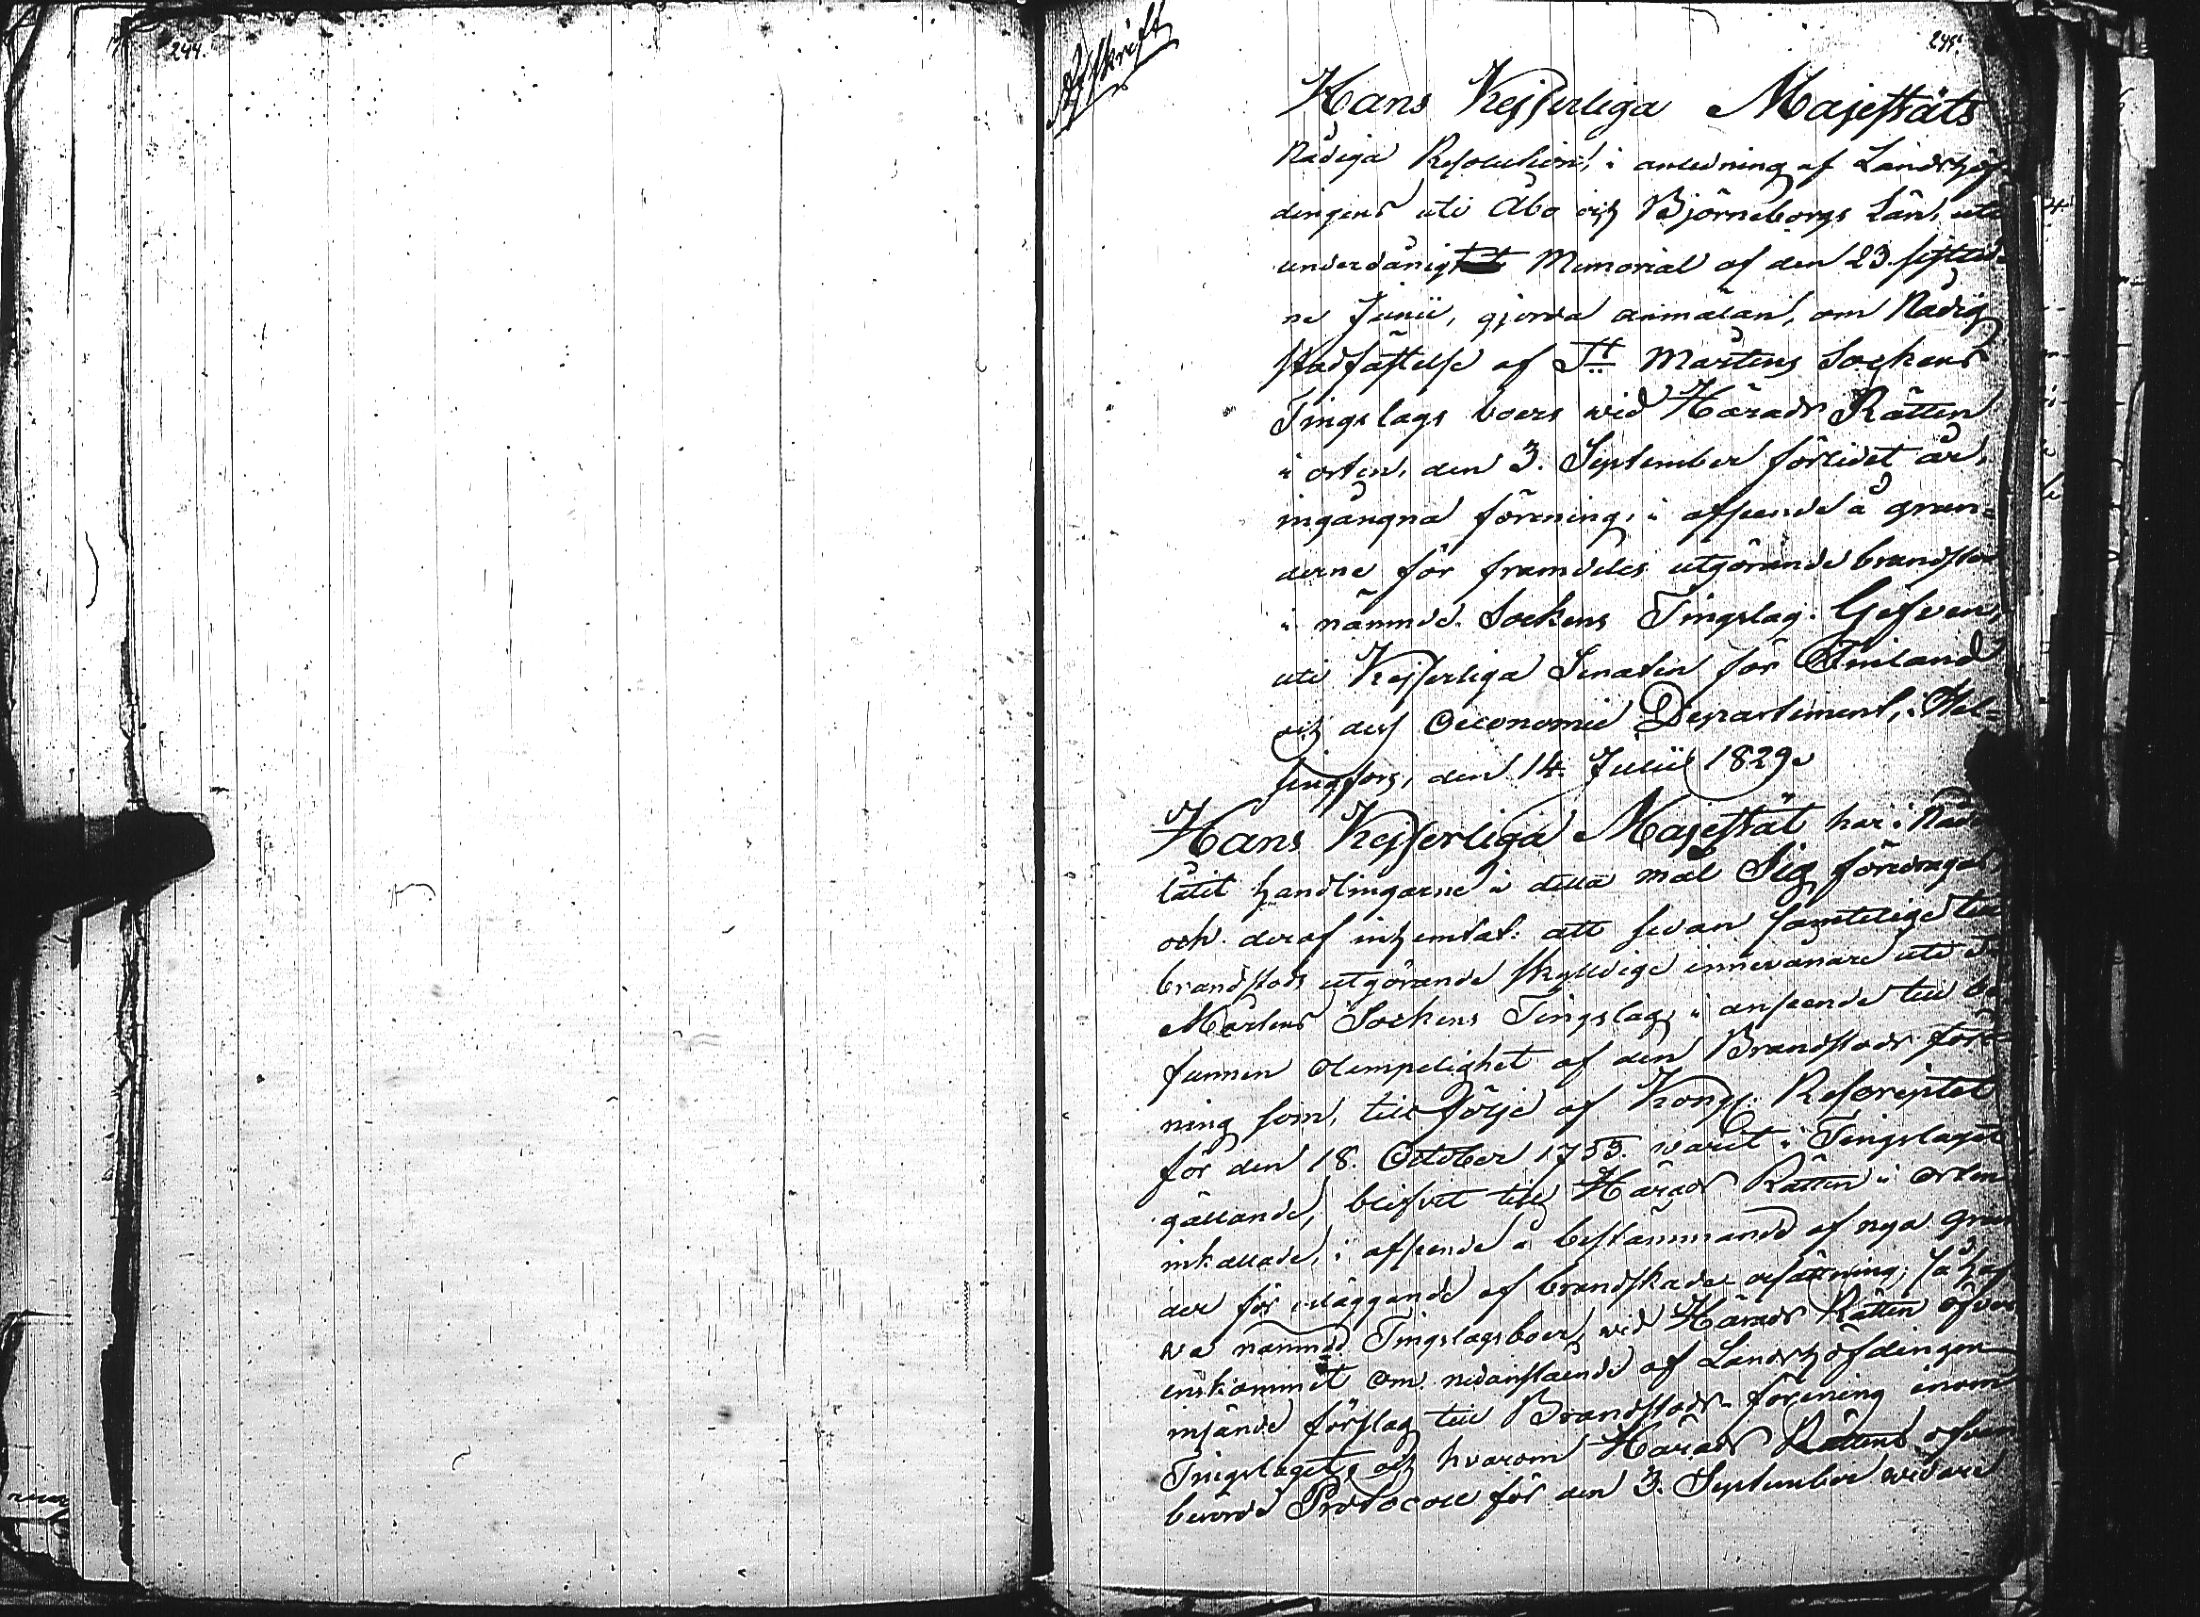 244.
245.
Afskrift
Hans Kejserliga Majestäts
Nådiga Resolution, i anledning af Landshöf-
dingens uti Åbo och Björneborgs Län, uti
underdånigt Memorial af den 23. sistled-
ne Junii, gjorda anmälan, om Nådig
stadfästelse af S:t Mårtens Sockens
Tingslags boers wid Härads Rätten
i orten, den 3. September förledet år,
ingångna förening, i afseende å grun-
derne för framdeles utgörande brandstod
i nämnde Sockens Tingslag. Gifven,
uti Kejserliga Senaten för Finland
och dess Oeconomie Departement, i Hel-
singfors, den 14. Julii 1829.
Hans Kejserliga Majestät har i Nåder
låtit handlingarne i detta mål Sig föredragas
och deraf inhemtat: att sedan samtelige till
brandstods utgörande skyldige innevånare uti S:t
Mårtens Sockens Tingslag, i anseende till be-
funnen olempelighet af den Brandstods före-
ning som, till följe af Kongl. Rescriptet
för den 18. October 1753. varit i Tingslaget
gällande, blifvit till Härads Rätten i orten
inkallade, i afseende å bestämmande af nya grun-
der för erläggande af brandskade ersättning; så haf-
va nämnde Tingslagsboer, wid Härads Rätten öfver-
enskommit om nedanstående af Landshöfdingen
insände förslag till Brandstods förening inom
Tingslaget, och hvarom Härads Rättens ofvan
berörde Protocoll för den 3. September widare